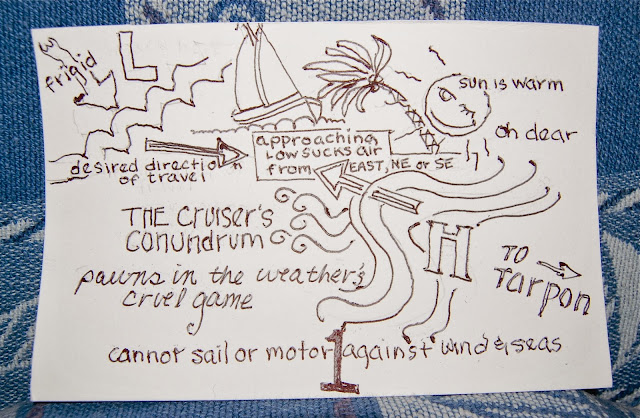 W
frigid
L
sun is warm
oh dear
approaching
LOW SUCKS air
from EAST, NE or SE
desired direction
of travel
THE CRUISER'S
CONUNDRUM
H
TO
Tarpon
pawns in the weather's
cruel game
1
cannot sail or motor against wind & seas